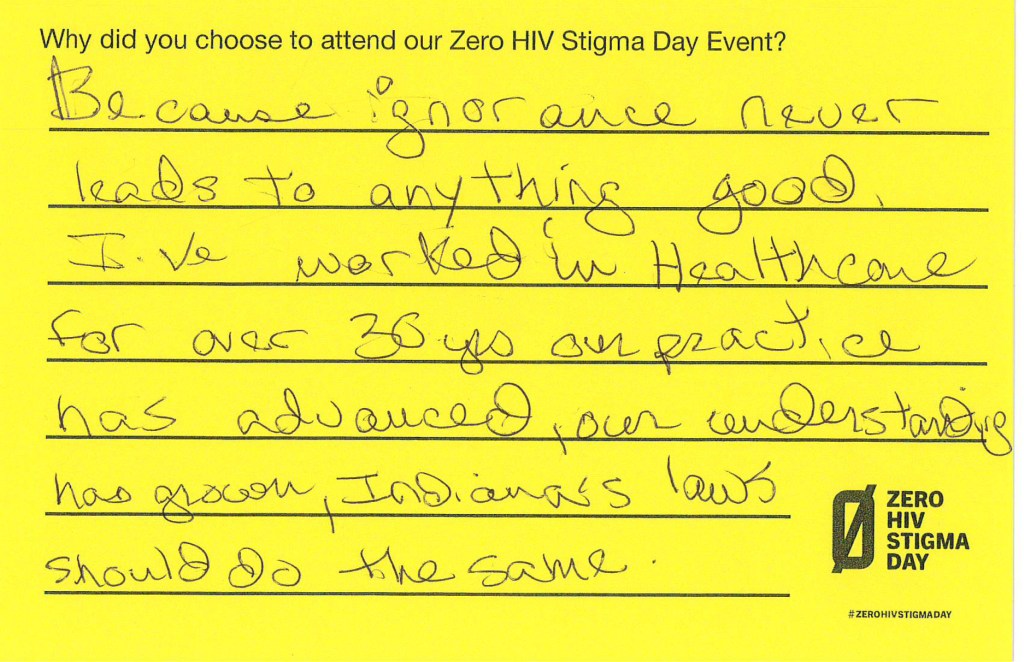 Why did you choose to attend our Zero HIV Stigma Day Event?
Because ignorance never
leads to anything good.
I've worked in Healthcare
for over 36 yrs our practice
has advanced, our understanding
has grown, Indiana's laws
should do the same.
ZERO
HIV
STIGMA
DAY
#ZEROHIVSTIGMADAY